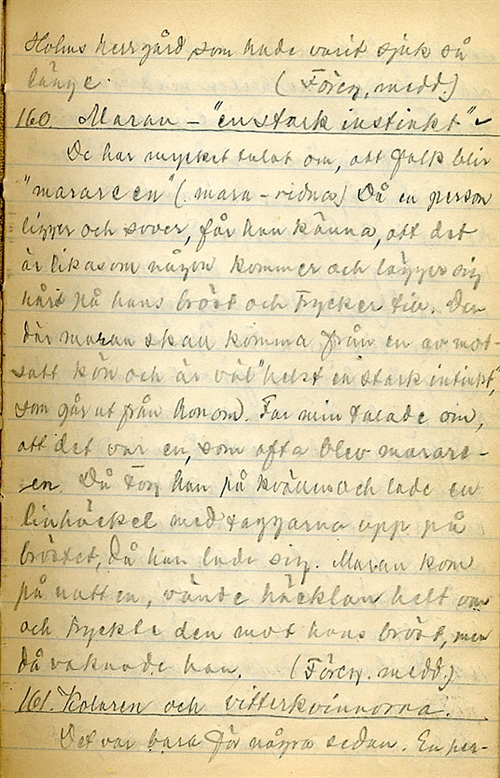 Holms herrgård, som hade varit sjuk så
länge. (Föreg. medd.)
160. Maran – "en stark instinkt"
De har mycket talat om, att folk blir
"marareen" (mara-ridna) Då en person
ligger och sover, får han känna, att det
är likasom någon kommer och lägger sig
hårt på hans bröst och trycker till. Den
där maran skall komma från en av mot-
satt kön och är väl "helst en stark intinkt",
som går ut från honom. Far min talade om,
att det var en, som ofta blev marare-
en. Då tog han på kvällen och lade en
linhäckel med taggarna upp på
bröstet, då han lade sig. Maran kom
på natten, vände häcklan helt om
och tryckte den mot hans bröst, men
då vaknade han. (Föreg. medd.)
161. Kolaren och vitterkvinnorna.
Det var bara för några sedan. En per-